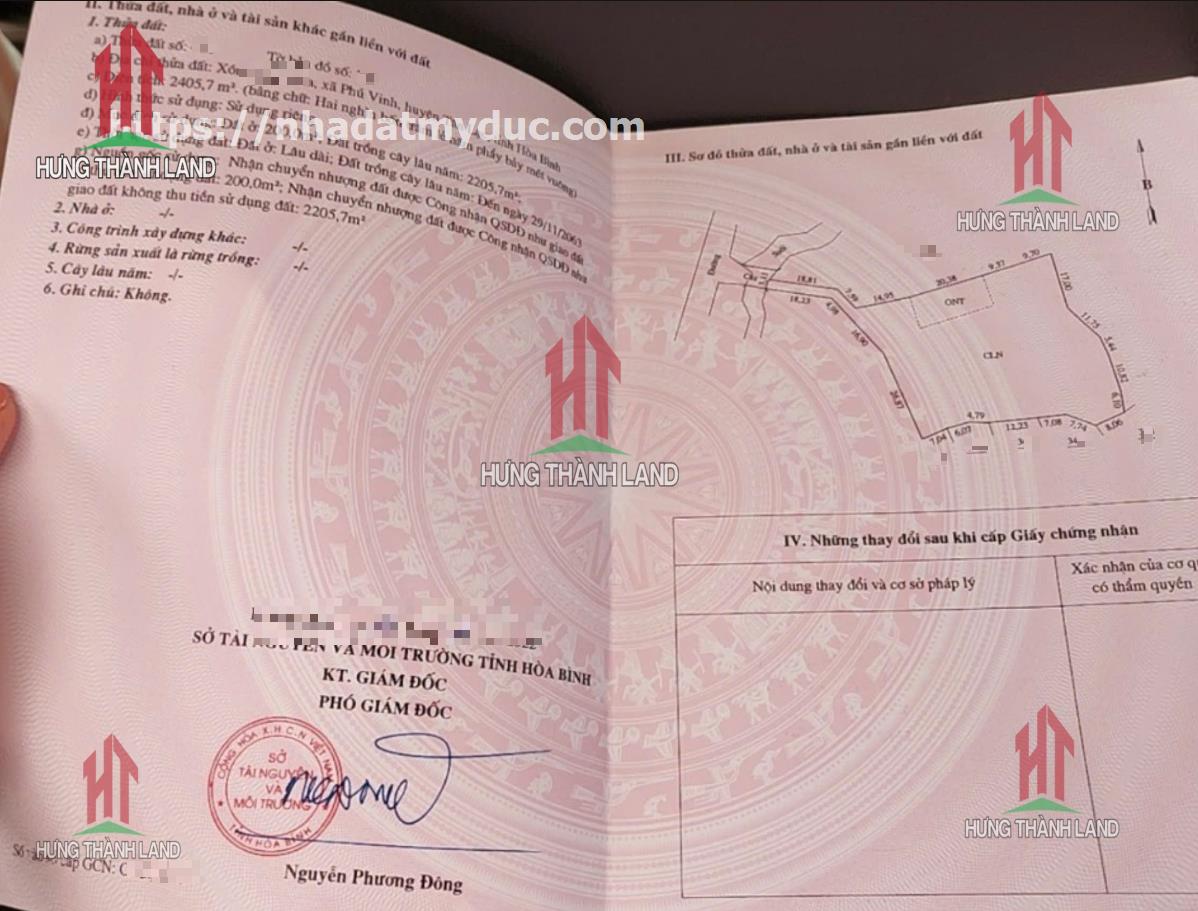 II. Thửa đất, nhà ở và tài sản khác gắn liền với đất
1. Thửa đất:
a) Thửa đất số: Tờ bản đồ số:
b) Địa chỉ thửa đất: Xóm xã Phú Vinh, huyện tỉnh Hòa Bình
c) Diện tích: 2405,7 m². (bằng chữ: Hai nghìn phẩy bảy mét vuông)
d) Hình thức sử dụng: Sử dụng riêng
đ) Mục đích sử dụng: Đất ở: 200,0m²; Đất trồng cây lâu năm: 2205,7m².
e) sử dụng đất: Đất ở: Lâu dài; Đất trồng cây lâu năm: Đến ngày 29/11/2063
g) Nguồn gốc sử dụng: Nhận chuyển nhượng đất được Công nhận QSDĐ như giao đất
đất: 200,0m²; Nhận chuyển nhượng đất được Công nhận QSDĐ như
giao đất không thu tiền sử dụng đất: 2205,7m²
2. Nhà ở: -/-
3. Công trình xây dựng khác: -/-
4. Rừng sản xuất là rừng trồng: -/-
5. Cây lâu năm: -/-
6. Ghi chú: Không.
https://nhadatmyduc.com
HT
HƯNG THÀNH LAND
SỞ TÀI NGUYÊN VÀ MÔI TRƯỜNG TỈNH HÒA BÌNH
KT. GIÁM ĐỐC
PHÓ GIÁM ĐỐC
CỘNG HÒA X.H.C.N VIỆT NAM
SỞ
TÀI NGUYÊN
VÀ
MÔI TRƯỜNG
TỈNH HÒA BÌNH
Nguyễn Phương Đông
HT
HƯNG THÀNH LAND
cấp GCN:
HT
HƯNG THÀNH LAND
III. Sơ đồ thửa đất, nhà ở và tài sản gắn liền với đất
HT
HƯNG THÀNH LAND
B
Đường
Suối
Cầu
18,81
18,23
7,59
4,98
14,95
20,38
9,37
9,70
ONT
17,00
11,75
5,44
10,82
6,10
CLN
16,90
26,87
7,04
6,07
4,79
12,23
7,08
7,74
8,06
34
IV. Những thay đổi sau khi cấp Giấy chứng nhận
Nội dung thay đổi và cơ sở pháp lý
Xác nhận của cơ qu
có thẩm quyền
HT
HƯNG THÀNH LAND